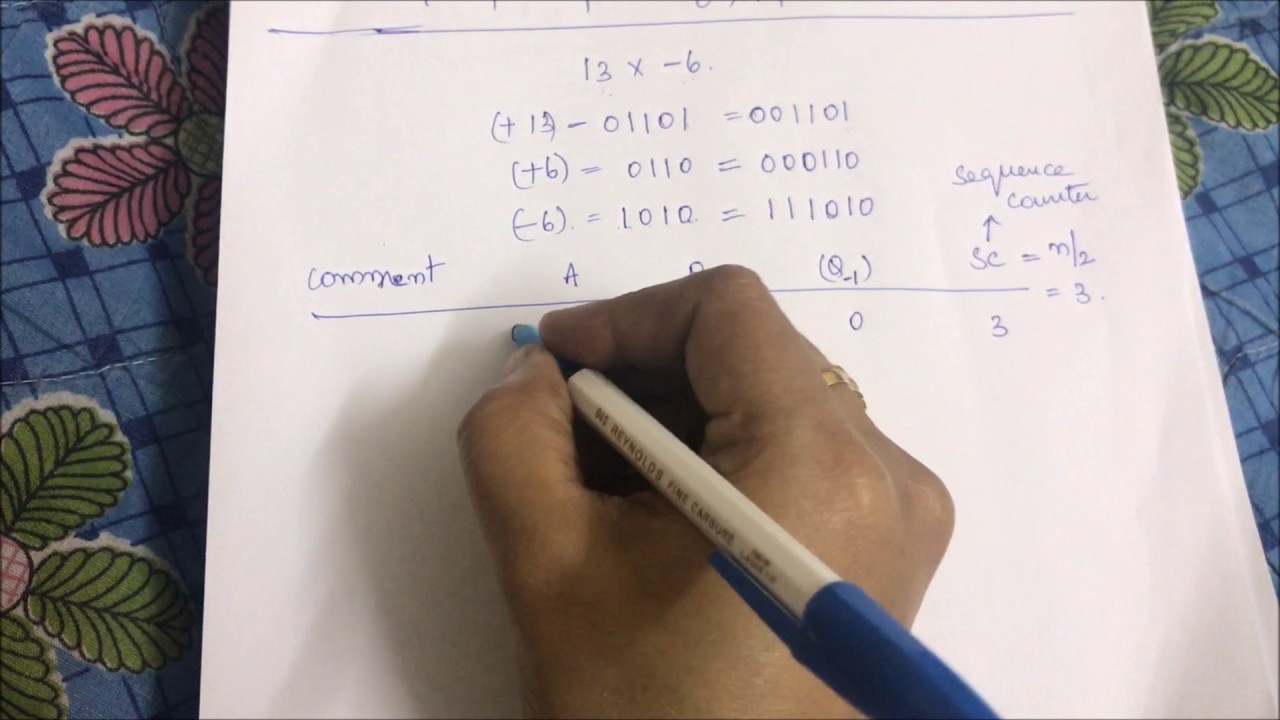 13 x -6.
(+13) - 01101 = 001101
(+6) = 0110 = 000110
(-6). = 1010. = 111010
sequence
counter
↑
comment A (Q-1) SC = n/2
= 3.
0 3
045 REYNOLDS FINE CARBURE